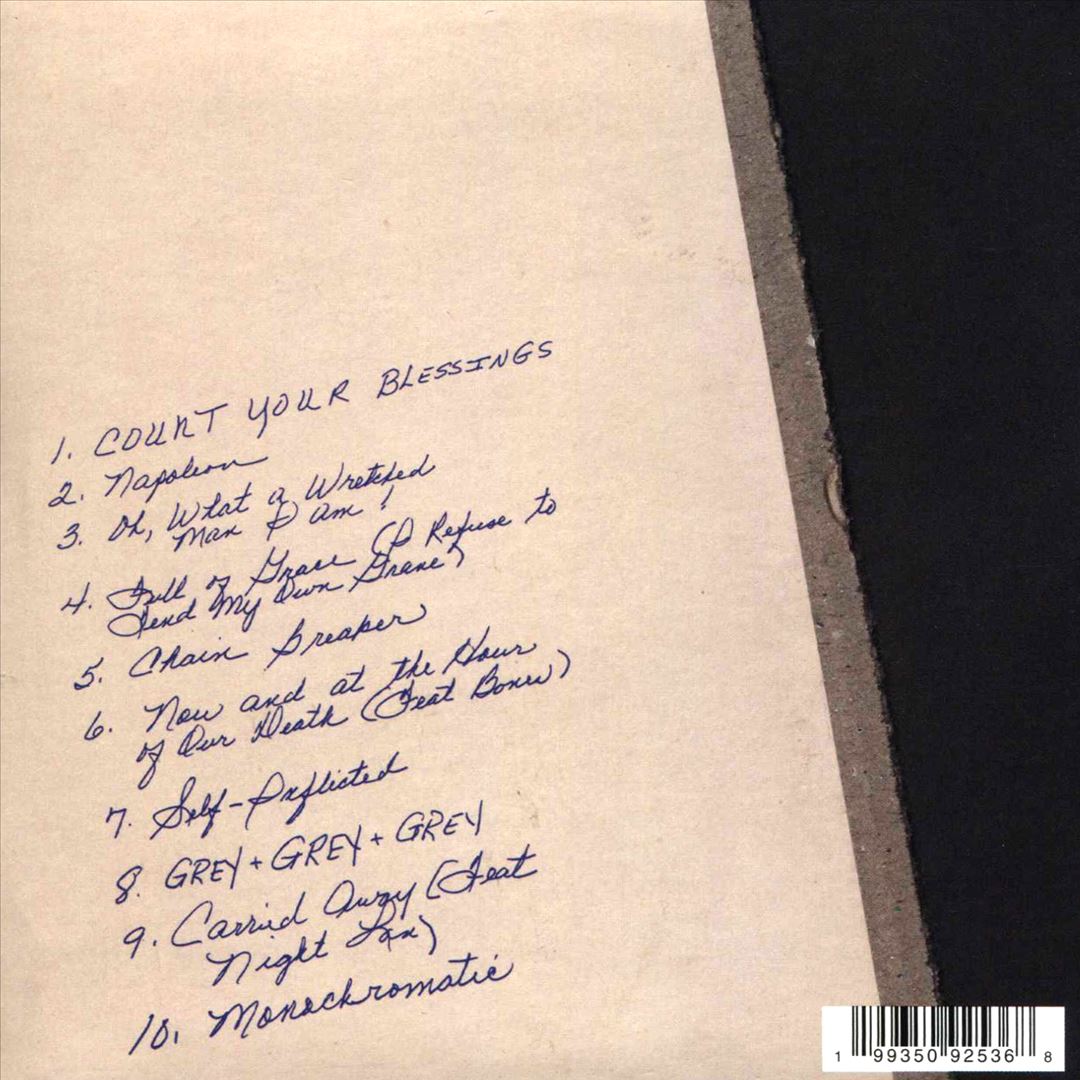 1. COUNT YOUR BLESSINGS
2. Napoleon
3. Oh, What a Wretched
Man I Am!
4. Full of Grace (I Refuse to
Tend My Own Grave)
5. Chain Breaker
6. Now and at the Hour
of Our Death (Feat Bones)
7. Self-Inflicted
8. GREY + GREY + GREY
9. Carried Away (Feat
Night
10. Monochromatic
1 99350 92536 8